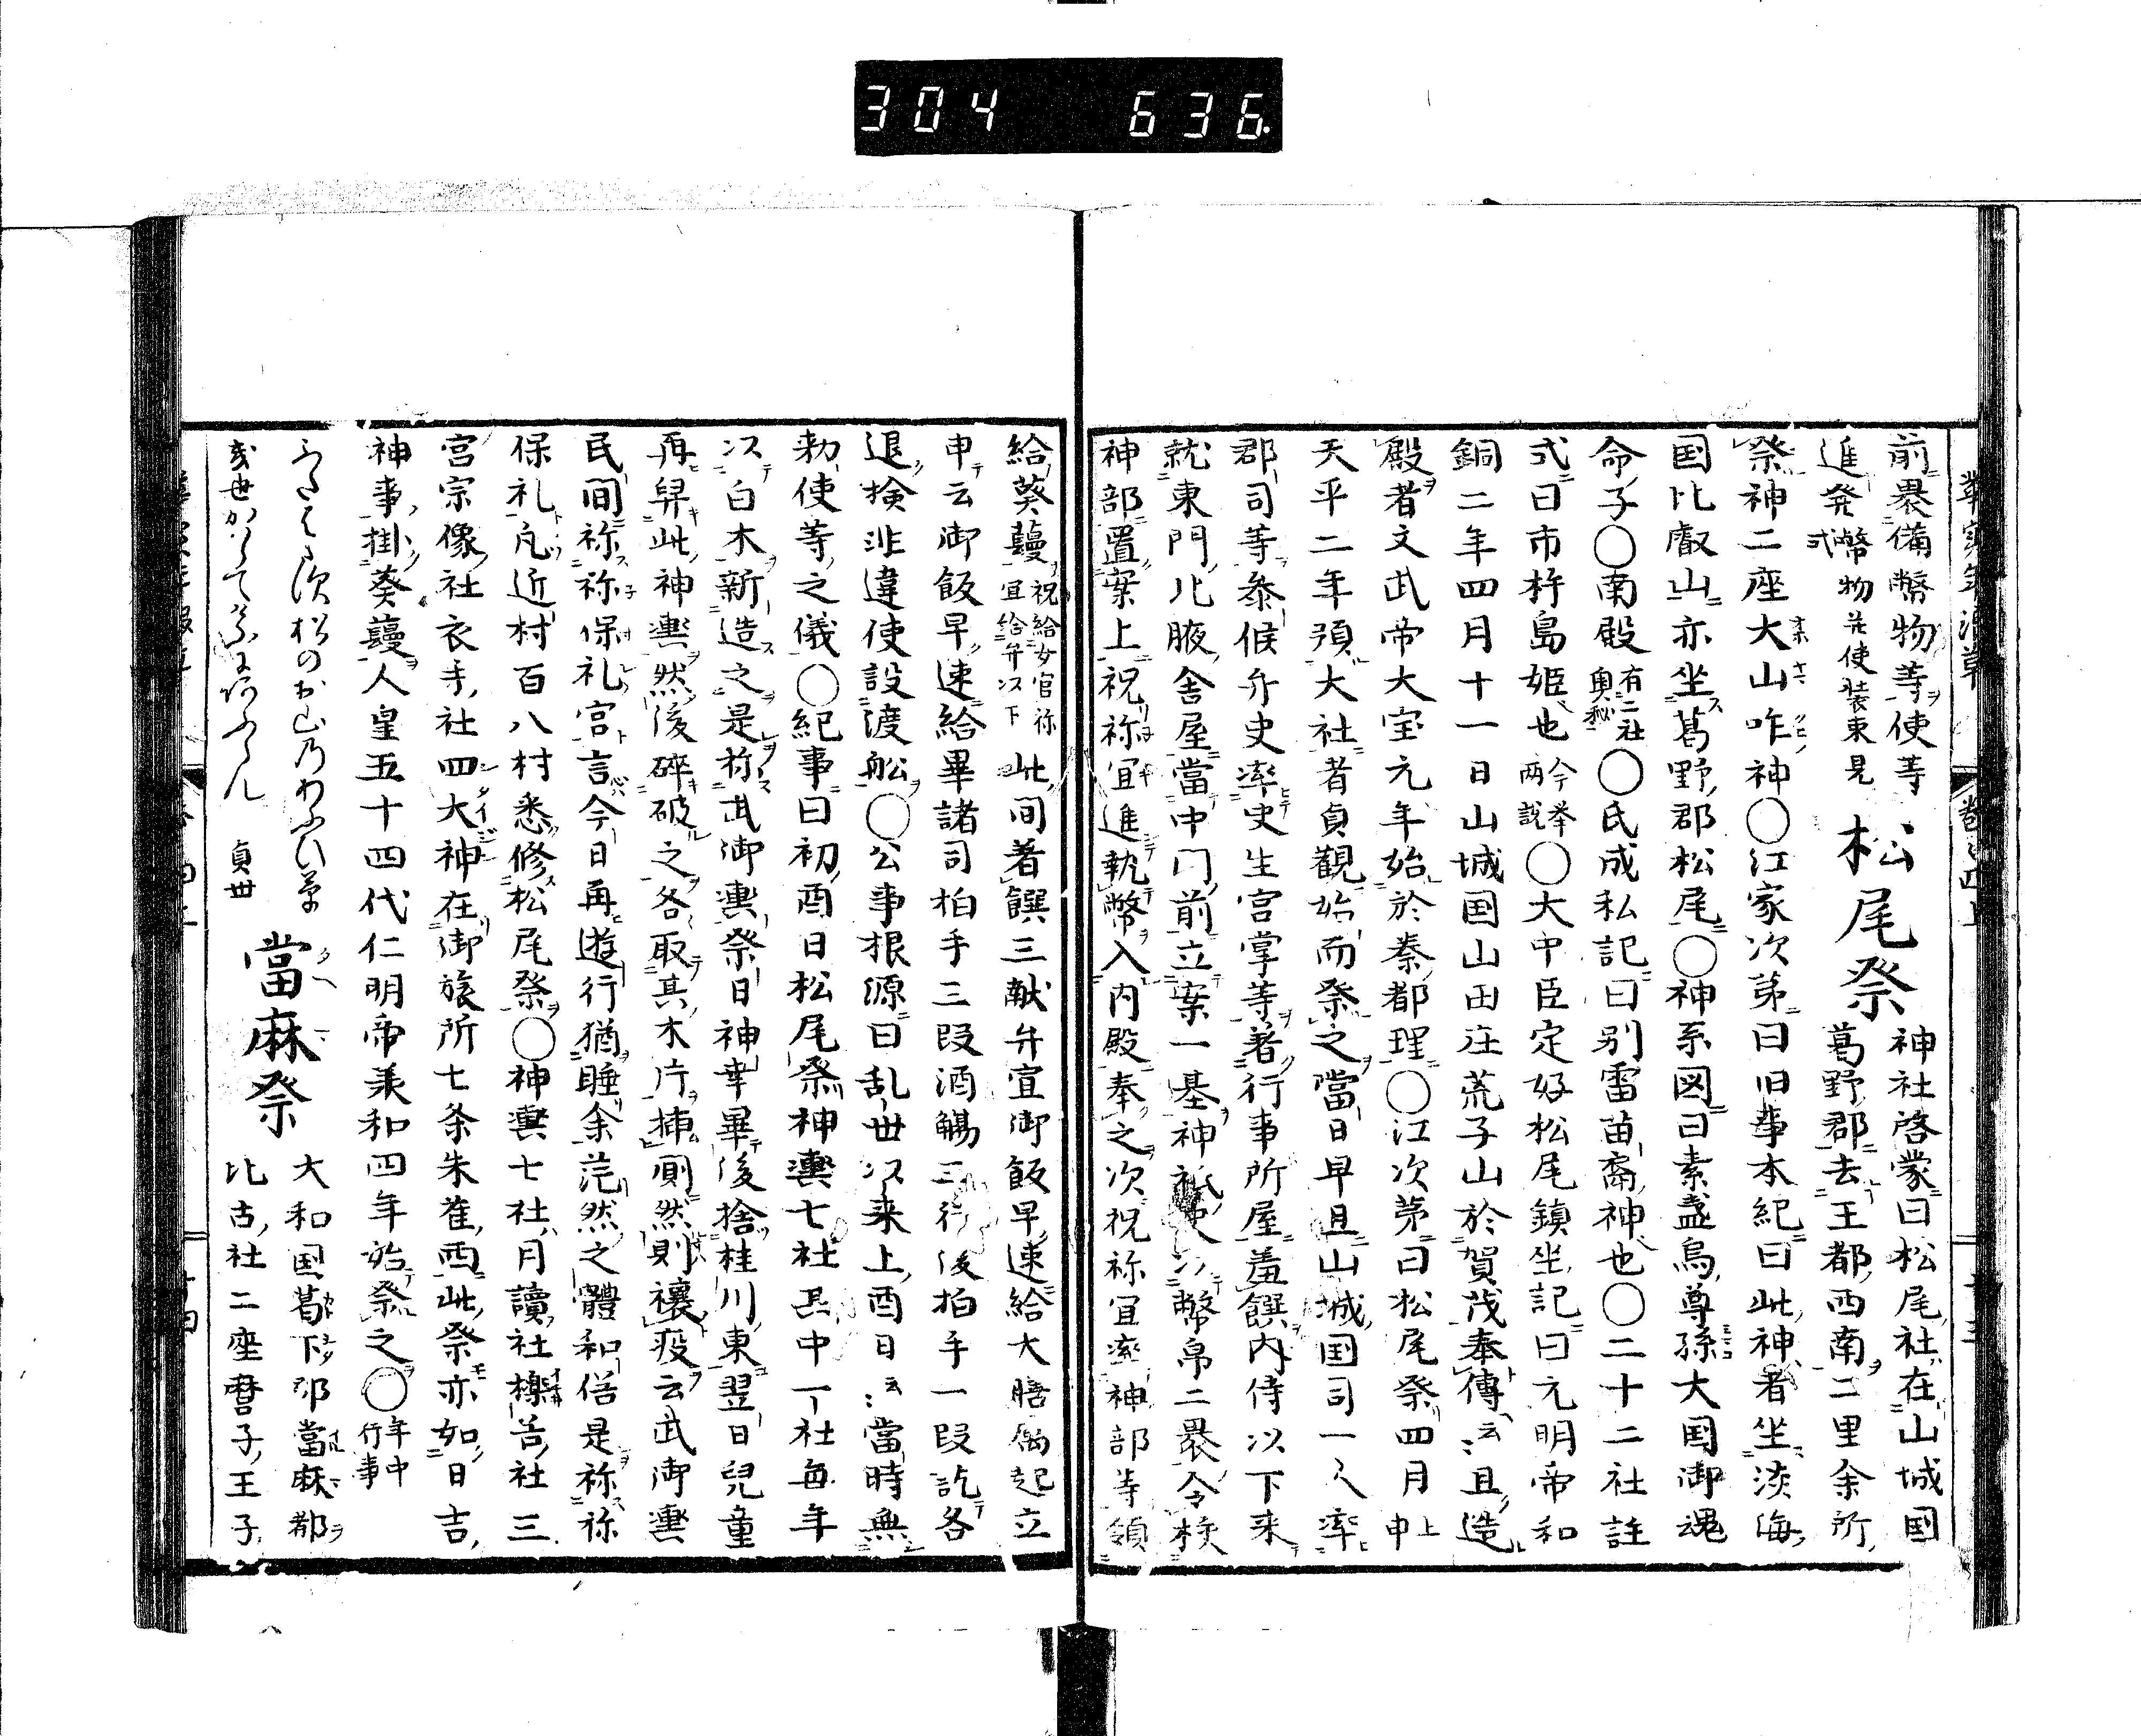 304 636
前畧備幣物等使等
進発幣物并使装束見式
松尾祭
神社啓蒙曰松尾社在山城国
葛野郡去王都西南二里余所
祭神二座大山咋神〇江家次第曰旧事本紀曰此神者坐淡海
国比叡山亦坐葛野郡松尾〇神系図曰素盞烏尊孫大国御魂
命子〇南殿有二社奥秘〇氏成私記曰別雷苗裔神也〇二十二社註
式曰市杵島姫也今挙両説〇大中臣定好松尾鎮坐記曰元明帝和
銅二年四月十一日山城国山田庄荒子山於賀茂奉傳云〻且造
殿者文武帝大宝元年始於秦都理〇江次第曰松尾祭四月上申
天平二年預大社者貞観始而祭之當日早旦山城国司一人率
郡司等参候弁史率史生官掌等著行事所屋羞饌内侍以下来
就東門北腋舎屋當中門前立案一基神祇以幣帛二褁令持
神部置案上祝祢宜進執幣入内殿奉之次祝祢宜率神部等領
給葵蘰祝給女官祢宜給弁以下此間着饌三献弁宣御飯早速給大膳属起立
申云御飯早速給畢諸司拍手三段酒觴三行後拍手一段訖各
退検非違使設渡船〇公事根源曰乱世以来上酉日云〻當時無
勅使等之儀〇紀事曰初酉日松尾祭神輿七社其中一社毎年
以白木新造之是称武御輿祭日神幸畢後捨桂川東翌日兒童
再舁此神輿然後碎破之各取其木片挿厠然則禳疫云武御輿
民間祢祢保礼宮言今日再遊行猶睡余茫然之體和俗是祢祢
保礼凡近村百八村悉修松尾祭〇神輿七社月讀社櫟谷社三
宮宗像社衣手社四大神在御旅所七条朱雀西此祭亦如日吉
神事掛葵蘰人皇五十四代仁明帝羕和四年始祭之〇年中行事
貞世
當麻祭
大和国葛下郡當麻都
比古社二座麿子王子